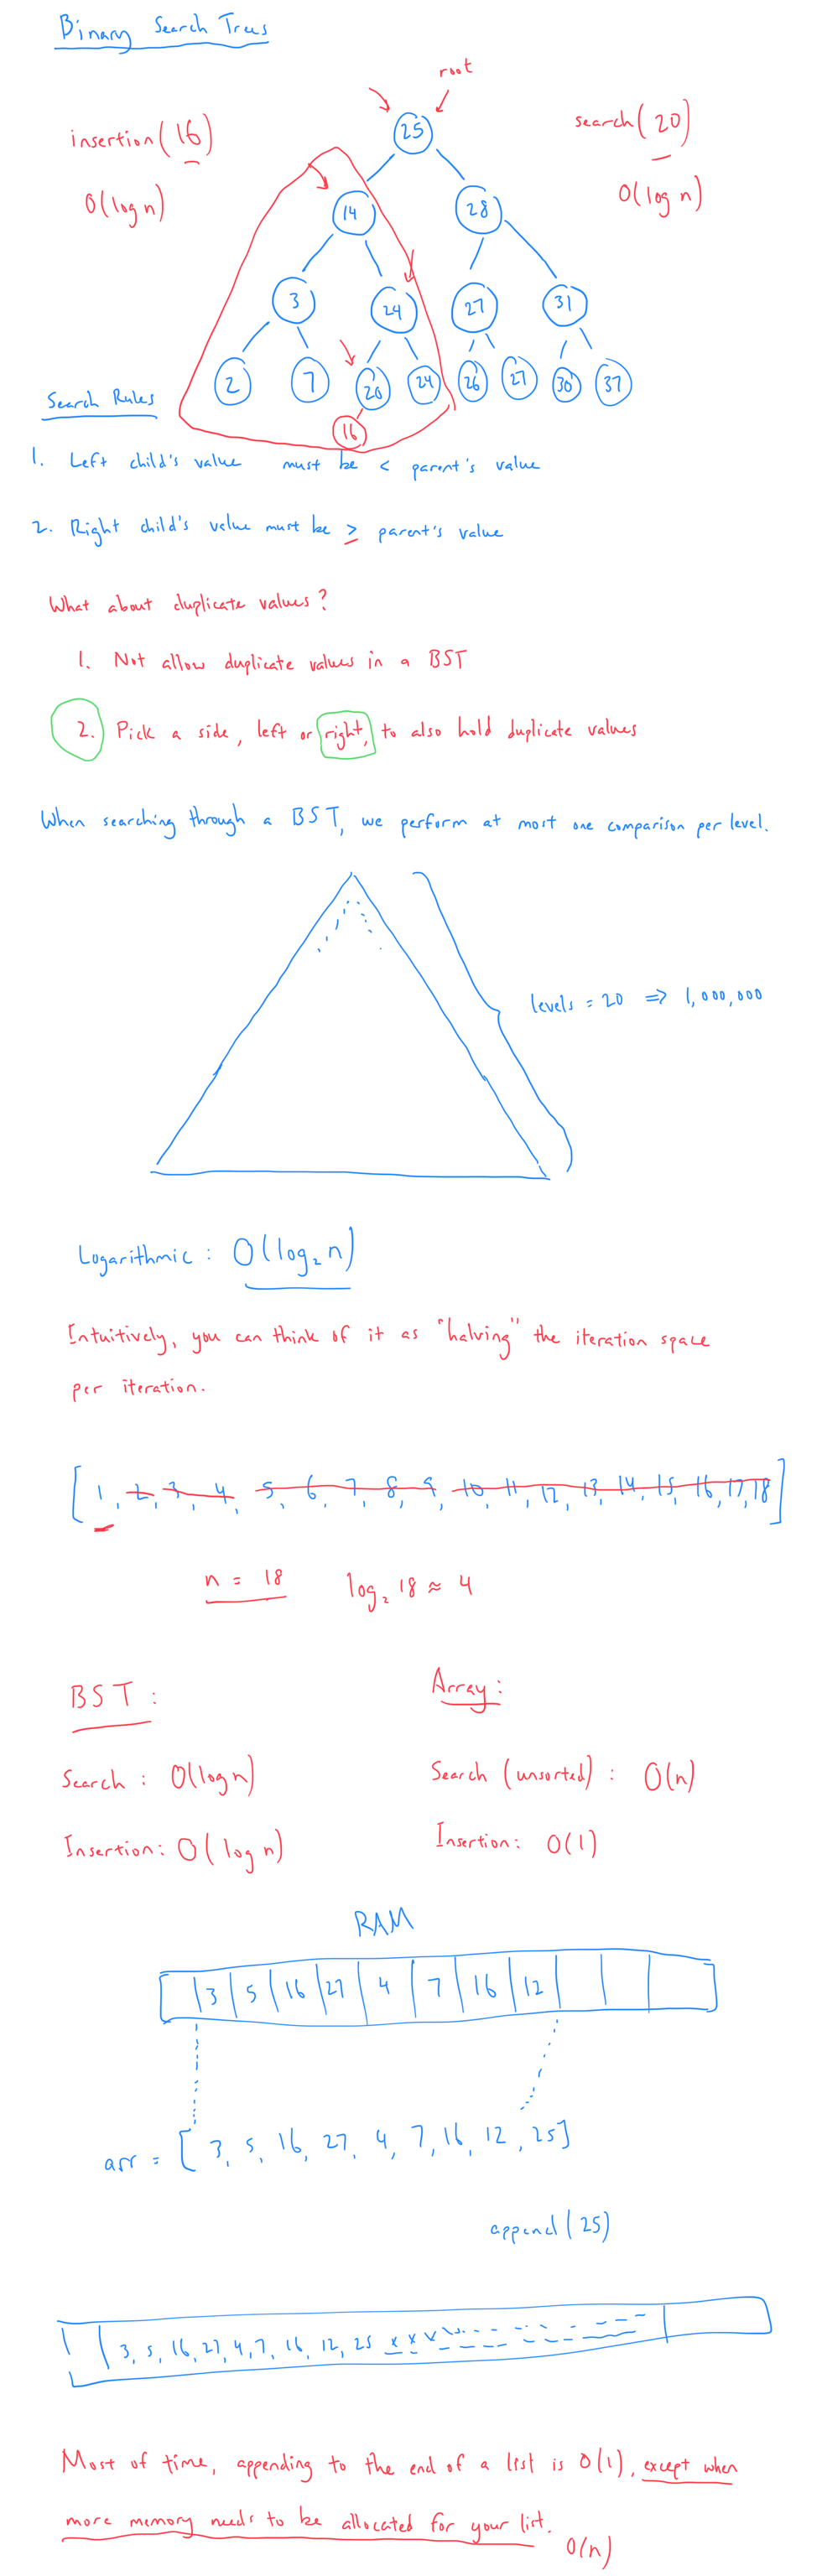 Binary Search Trees
root
insertion(16)
search(20)
O(log n)
O(log n)
25
14
28
3
24
27
31
2
7
20
24
26
27
30
37
16
Search Rules
1. Left child's value must be < parent's value
2. Right child's value must be ≥ parent's value
What about duplicate values?
1. Not allow duplicate values in a BST
2. Pick a side, left or right, to also hold duplicate values
When searching through a BST, we perform at most one comparison per level.
levels = 20 ⇒ 1,000,000
Logarithmic : O(log₂ n)
Intuitively, you can think of it as "halving" the iteration space
per iteration.
[1, 2, 3, 4, 5, 6, 7, 8, 9, 10, 11, 12, 13, 14, 15, 16, 17, 18]
n = 18 log₂ 18 ≈ 4
BST :
Array :
Search : O(log n)
Search (unsorted) : O(n)
Insertion: O(log n)
Insertion: O(1)
RAM
3 5 16 27 4 7 16 12
arr = [3, 5, 16, 27, 4, 7, 16, 12, 25]
append(25)
3, 5, 16, 27, 4, 7, 16, 12, 25 x x
Most of time, appending to the end of a list is O(1), except when
more memory needs to be allocated for your list.
O(n)